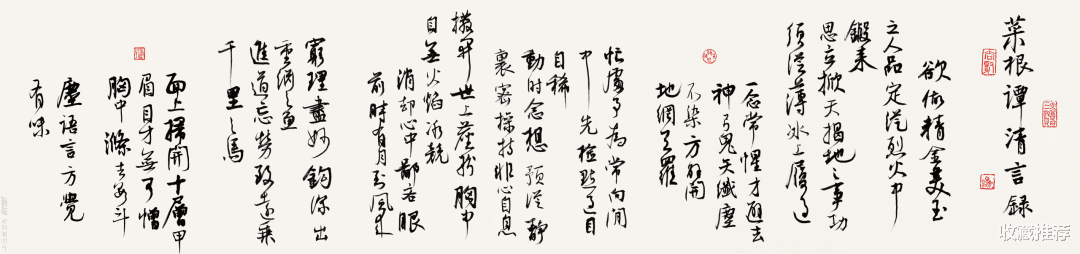 菜根谭清言録
欲做精金美玉
之人品定從烈火中
鍛来
思立掀天揭地之事功
須從薄冰上履過
一念常惺才避去
神弓鬼矢纖塵
不染方解開
地網天羅
忙處事為常向閒
中先檢點過自
自稀
動時念想預從靜
裏密操持非心自息
撥開世上塵氛胸中
自無火焰冰兢
消却心中鄙吝眼
前時有月到風來
窮理盡妙鉤深出
重淵之魚
進道忘勞致遠乘
千里之馬
面上掃開十層甲
眉目才無可憎
胸中滌去數斗
塵語言方覺
有味
收藏推荐